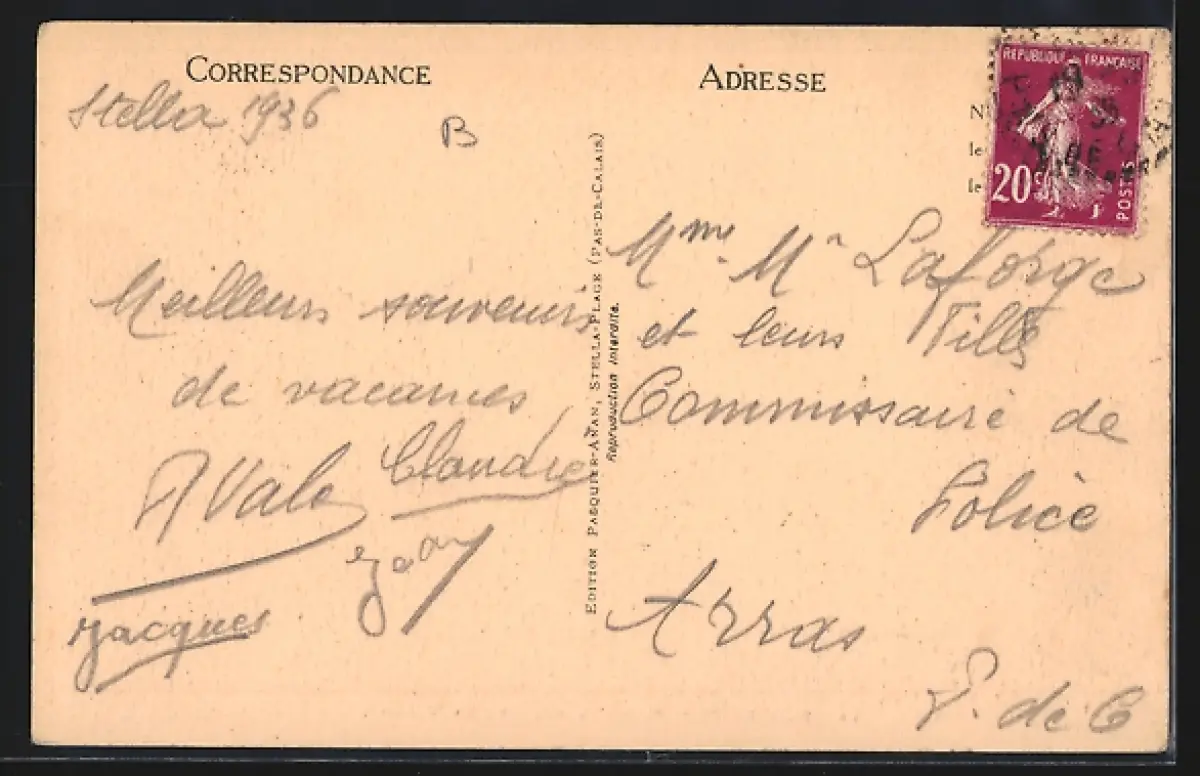 CORRESPONDANCE
Stella 1936
B
Meilleurs souvenirs
de vacances
A Vale Claudie
Jacques
EDITION PASQUIER-ANAN, STELLA-PLAGE (PAS-DE-CALAIS)
Reproduction interdite.
ADRESSE
REPUBLIQUE FRANÇAISE
20c
POSTES
N
le
le
Mme Mr Laforge
et leurs Filles
Commissaire de
Police
Arras
P. de C